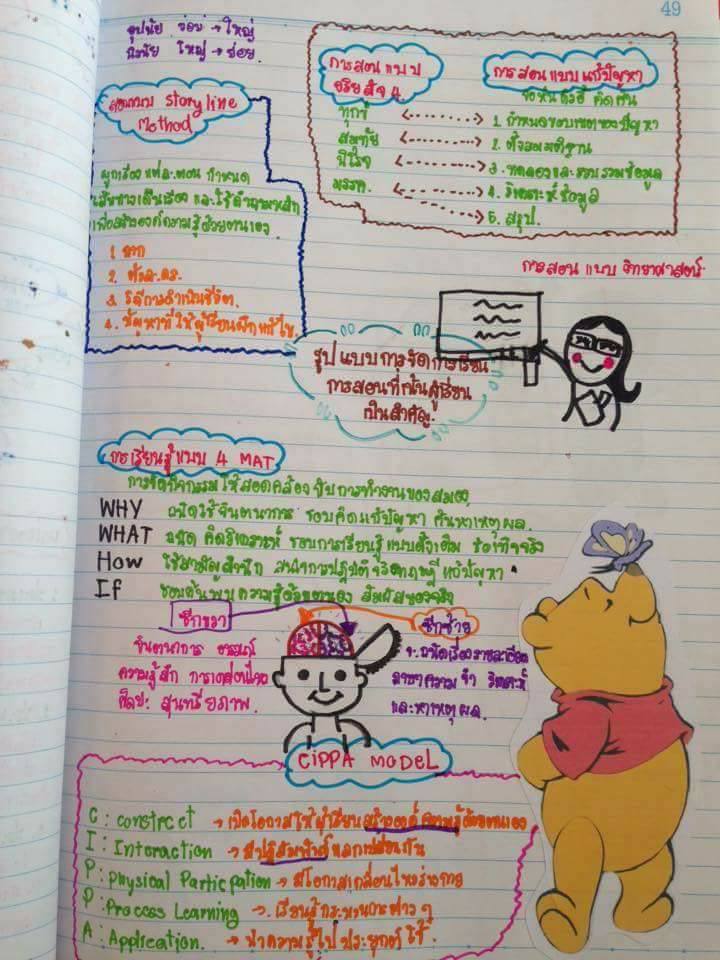 49
อุปนัย ย่อย → ใหญ่
นิรนัย ใหญ่ → ย่อย
สอนแบบ Storyline
Method
ผูกเรื่อง แต่ละตอน กำหนด
เส้นทางเดินเรื่อง และใช้คำถามหลัก
เพื่อสร้างองค์ความรู้ด้วยตนเอง
1 ฉาก
2. ตัวละคร
3. วิถีการดำเนินชีวิต
4. ปัญหาที่ให้ผู้เรียนฝึกแก้ไข
การสอน แบบ
อริยสัจ 4
ทุกข์
สมุทัย
นิโรจ
มรรค
การสอนแบบแก้ปัญหา
จอห์นดิวอี้ คิดค้น
1. กำหนดขอบเขตของปัญหา
2. ตั้งสมมติฐาน
3. ทดลองและรวบรวมข้อมูล
4. วิเคราะห์ข้อมูล
5. สรุป.
การสอน แบบ วิทยาศาสตร์
รูปแบบการจัดการเรียน
การสอนที่เน้นผู้เรียน
เป็นสำคัญ.
การเรียนรู้แบบ 4 MAT
การจัดกิจกรรมให้สอดคล้องกับการทำงานของสมอง
WHY ถนัดใช้จินตนาการ ชอบคิดแก้ปัญหา ค้นหาเหตุผล.
WHAT ถนัด คิดวิเคราะห์ ชอบการเรียนรู้แบบดั้งเดิม ข้อเท็จจริง
How ใช้สามัญสำนึก สนใจการปฏิบัติ แก้ปัญหา
If ชอบค้นพบความรู้ด้วยตนเอง สัมผัสของจริง
ซีกขวา
จินตนาการ อารมณ์
ความรู้สึก การเคลื่อนไหว
ศิลปะ สุนทรียภาพ.
ซีกซ้าย
ถนัดเรื่องรายละเอียด
ภาษาความจำ วิเคราะห์
และหาเหตุผล.
CIPPA MODEL
C : constrect → เปิดโอกาสให้ผู้เรียนสร้างองค์ความรู้ด้วยตนเอง
I : Interaction → มีปฏิสัมพันธ์แลกเปลี่ยนกัน
P : Physical Particpation → มีโอกาสเคลื่อนไหวร่างกาย
P : Process Learning → เรียนรู้กระบวนการต่าง ๆ
A : Applreation. → นำความรู้ไป ประยุกต์ ใช้